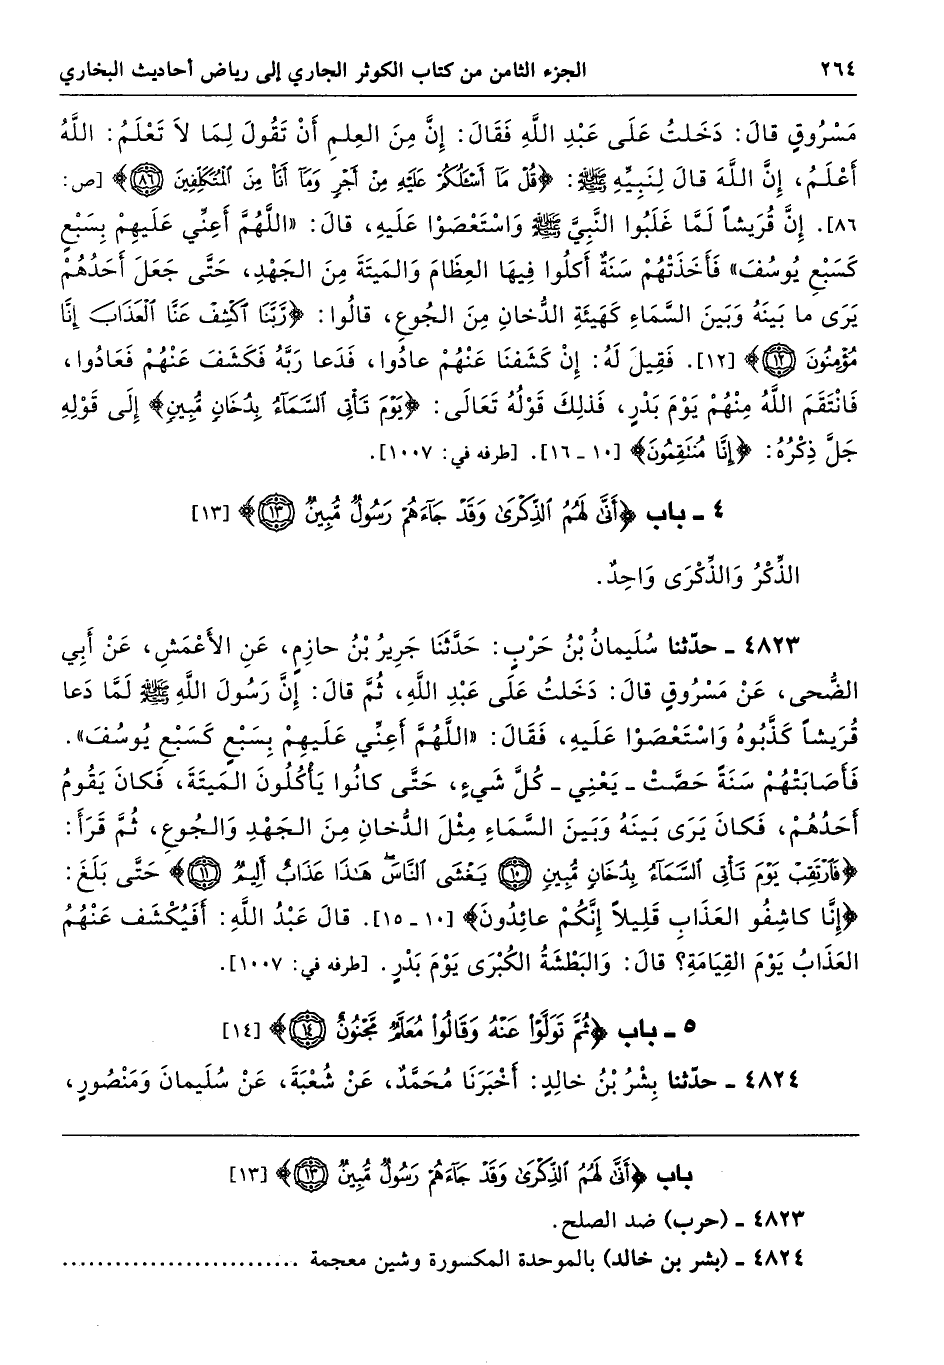 ٢٦٤ الجزء الثامن من كتاب الكوثر الجاري إلى رياض أحاديث البخاري
مَسْرُوقٍ قالَ: دَخَلتُ عَلَى عَبْدِ اللَّهِ فَقَالَ: إِنَّ مِنَ العِلمِ أَنْ تَقُولَ لِمَا لاَ تَعْلَمُ: اللَّهُ
أَعْلَمُ، إِنَّ اللَّهَ قالَ لِنَبِيِّهِ ﷺ: ﴿قُلْ مَآ أَسْـَٔلُكُمْ عَلَيْهِ مِنْ أَجْرٍ وَمَآ أَنَا۠ مِنَ ٱلْمُتَكَلِّفِينَ ۝٨٦﴾ [ص:
٨٦]. إِنَّ قُرَيشاً لَمَّا غَلَبُوا النَّبِيَّ ﷺ وَاسْتَعْصَوْا عَلَيهِ، قالَ: «اللَّهُمَّ أَعِنِّي عَلَيهِمْ بِسَبْعٍ
كَسَبْعِ يُوسُفَ» فَأَخَذَتْهُمْ سَنَةٌ أَكَلُوا فِيهَا العِظَامَ وَالمَيتَةَ مِنَ الجَهْدِ، حَتَّى جَعَلَ أَحَدُهُمْ
يَرَى ما بَينَهُ وَبَينَ السَّمَاءِ كَهَيئَةِ الدُّخانِ مِنَ الجُوعِ، قالُوا: ﴿رَّبَّنَا ٱكْشِفْ عَنَّا ٱلْعَذَابَ إِنَّا
مُؤْمِنُونَ ۝١٢﴾ [١٢]. فَقِيلَ لَهُ: إِنْ كَشَفنَا عَنْهُمْ عادُوا، فَدَعا رَبَّهُ فَكَشَفَ عَنْهُمْ فَعَادُوا،
فَانْتَقَمَ اللَّهُ مِنْهُمْ يَوْمَ بَدْرٍ، فَذلِكَ قَوْلُهُ تَعَالَى: ﴿يَوْمَ تَأْتِى ٱلسَّمَآءُ بِدُخَانٍ مُّبِينٍ﴾ إِلَى قَوْلِهِ
جَلَّ ذِكْرُهُ: ﴿إِنَّا مُنتَقِمُونَ﴾ [١٠ ـ ١٦]. [طرفه في: ١٠٠٧].
٤ ـ باب ﴿أَنَّىٰ لَهُمُ ٱلذِّكْرَىٰ وَقَدْ جَآءَهُمْ رَسُولٌ مُّبِينٌ ۝١٣﴾ [١٣]
الذِّكْرُ وَالذِّكْرَى وَاحِدٌ.
٤٨٢٣ ـ حدّثنا سُلَيمانُ بْنُ حَرْبٍ: حَدَّثَنَا جَرِيرُ بْنُ حازِمٍ، عَنِ الأَعْمَشِ، عَنْ أَبِي
الضُّحى، عَنْ مَسْرُوقٍ قالَ: دَخَلتُ عَلَى عَبْدِ اللَّهِ، ثُمَّ قالَ: إِنَّ رَسُولَ اللَّهِ ﷺ لَمَّا دَعا
قُرَيشاً كَذَّبُوهُ وَاسْتَعْصَوْا عَلَيهِ، فَقَالَ: «اللَّهُمَّ أَعِنِّي عَلَيهِمْ بِسَبْعٍ كَسَبْعِ يُوسُفَ».
فَأَصَابَتْهُمْ سَنَةً حَصَّتْ ـ يَعْنِي ـ كُلَّ شَيءٍ، حَتَّى كانُوا يَأْكُلُونَ المَيتَةَ، فَكانَ يَقُومُ
أَحَدُهُمْ، فَكانَ يَرَى بَينَهُ وَبَينَ السَّمَاءِ مِثْلَ الدُّخانِ مِنَ الجَهْدِ وَالجُوعِ، ثُمَّ قَرَأَ:
﴿فَٱرْتَقِبْ يَوْمَ تَأْتِى ٱلسَّمَآءُ بِدُخَانٍ مُّبِينٍ ۝١٠ يَغْشَى ٱلنَّاسَۖ هَـٰذَا عَذَابٌ أَلِيمٌ ۝١١﴾ حَتَّى بَلَغَ:
﴿إِنَّا كاشِفُو العَذَابِ قَلِيلاً إِنَّكُمْ عائِدُونَ﴾ [١٠ ـ ١٥]. قالَ عَبْدُ اللَّهِ: أَفَيُكْشَفُ عَنْهُمُ
العَذَابُ يَوْمَ القِيَامَةِ؟ قالَ: وَالبَطْشَةُ الكُبْرَى يَوْمَ بَدْرٍ. [طرفه في: ١٠٠٧].
٥ ـ باب ﴿ثُمَّ تَوَلَّوْا۟ عَنْهُ وَقَالُوا۟ مُعَلَّمٌ مَّجْنُونٌ ۝١٤﴾ [١٤]
٤٨٢٤ ـ حدّثنا بِشْرُ بْنُ خالِدٍ: أَخْبَرَنَا مُحَمَّدٌ، عَنْ شُعْبَةَ، عَنْ سُلَيمانَ وَمَنْصُورٍ،
باب ﴿أَنَّىٰ لَهُمُ ٱلذِّكْرَىٰ وَقَدْ جَآءَهُمْ رَسُولٌ مُّبِينٌ ۝١٣﴾ [١٣]
٤٨٢٣ ـ (حرب) ضد الصلح.
٤٨٢٤ ـ (بشر بن خالد) بالموحدة المكسورة وشين معجمة ...........................